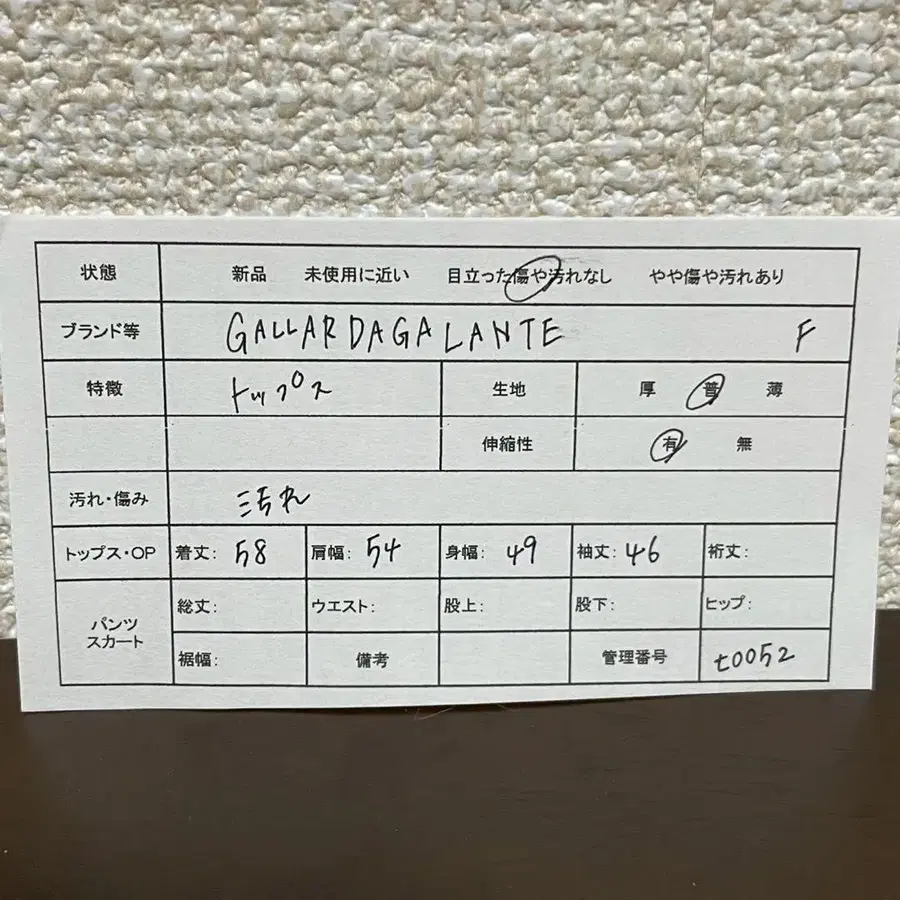 状態 新品 未使用に近い 目立った傷や汚れなし やや傷や汚れあり
ブランド等 GALLARDAGALANTE F
特徴 トップス 生地 厚 普 薄
伸縮性 有 無
汚れ・傷み 汚れ
トップス・OP 着丈: 58 肩幅: 54 身幅: 49 袖丈: 46 裄丈:
パンツ スカート 総丈: ウエスト: 股上: 股下: ヒップ:
裾幅: 備考 管理番号 t0052